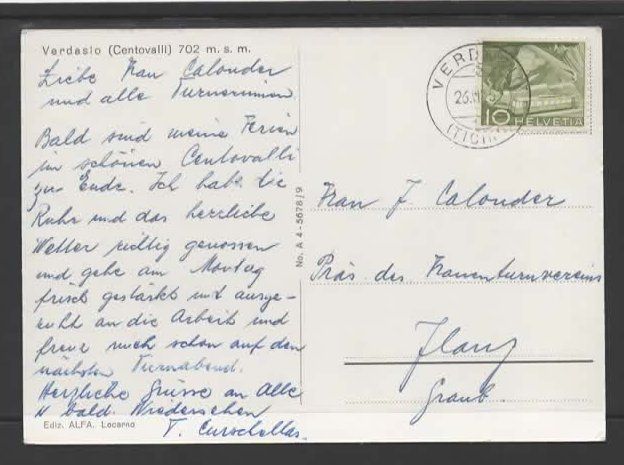 Verdasio (Centovalli) 702 m. s. m.
Liebe Frau Calonder
und alle Turnerinnen
Bald sind meine Ferien
im schönen Centovalli
zur Ende. Ich habe die
Ruhe und das herrliche
Wetter richtig genossen
und gehe am Montag
frisch gestärkt und ausge-
ruht an die Arbeit und
freue mich schon auf den
nächsten Turnabend.
Herzliche Grüsse an Alle
u bald. Wiedersehen
T. Curschellas.
Ediz. ALFA. Locarno
No. A 4-5678/9
VERD
26.
(TICIN
10
HELVETIA
Frau J. Calonder
Präs des Frauenturnvereins
Ilanz
Graub.